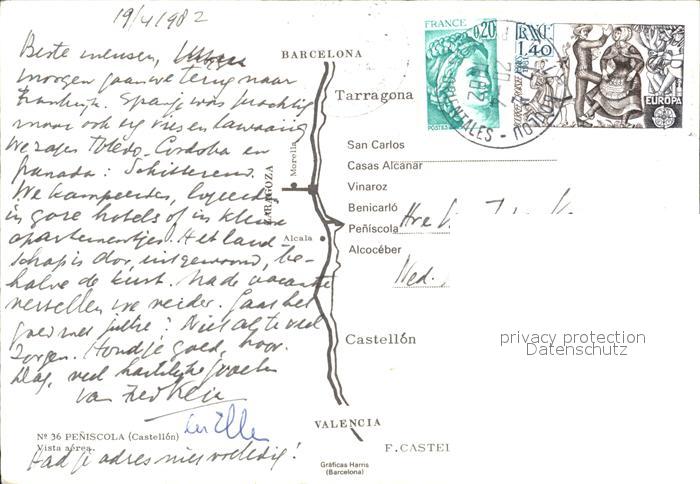 19/4 1982
Beste mensen,
morgen gaan we terug naar
Frankrijk. Spanje was prachtig
maar ook erg vies en lawaaiig
We zagen Toledo, Cordoba en
Granada: Schitterend.
We kampeerden, logeerden
in gore hotels of in kleine
apartementjes. Het land-
schap is dor, uitgewoond, be-
halve de kust. Na de vacantie
vertellen we verder. Gaat het
goed met jullie? Niet al te veel
zorgen. Houd je goed, hoor.
Dag, veel hartelijke groeten
van
en Ellen
Had je adres niet volledig!
BARCELONA
Tarragona
San Carlos
Casas Alcanar
Vinaroz
Benicarló
Peñíscola
Alcocéber
Morella
ZARAGOZA
Alcala
Castellón
VALENCIA
Nº 36 PEÑISCOLA (Castellón)
Vista aérea
Gráficas Harris
(Barcelona)
F. CASTEL
FRANCE
0,20
POSTES
FRANCE
1,40
EUROPA
Ned.
privacy protection
Datenschutz